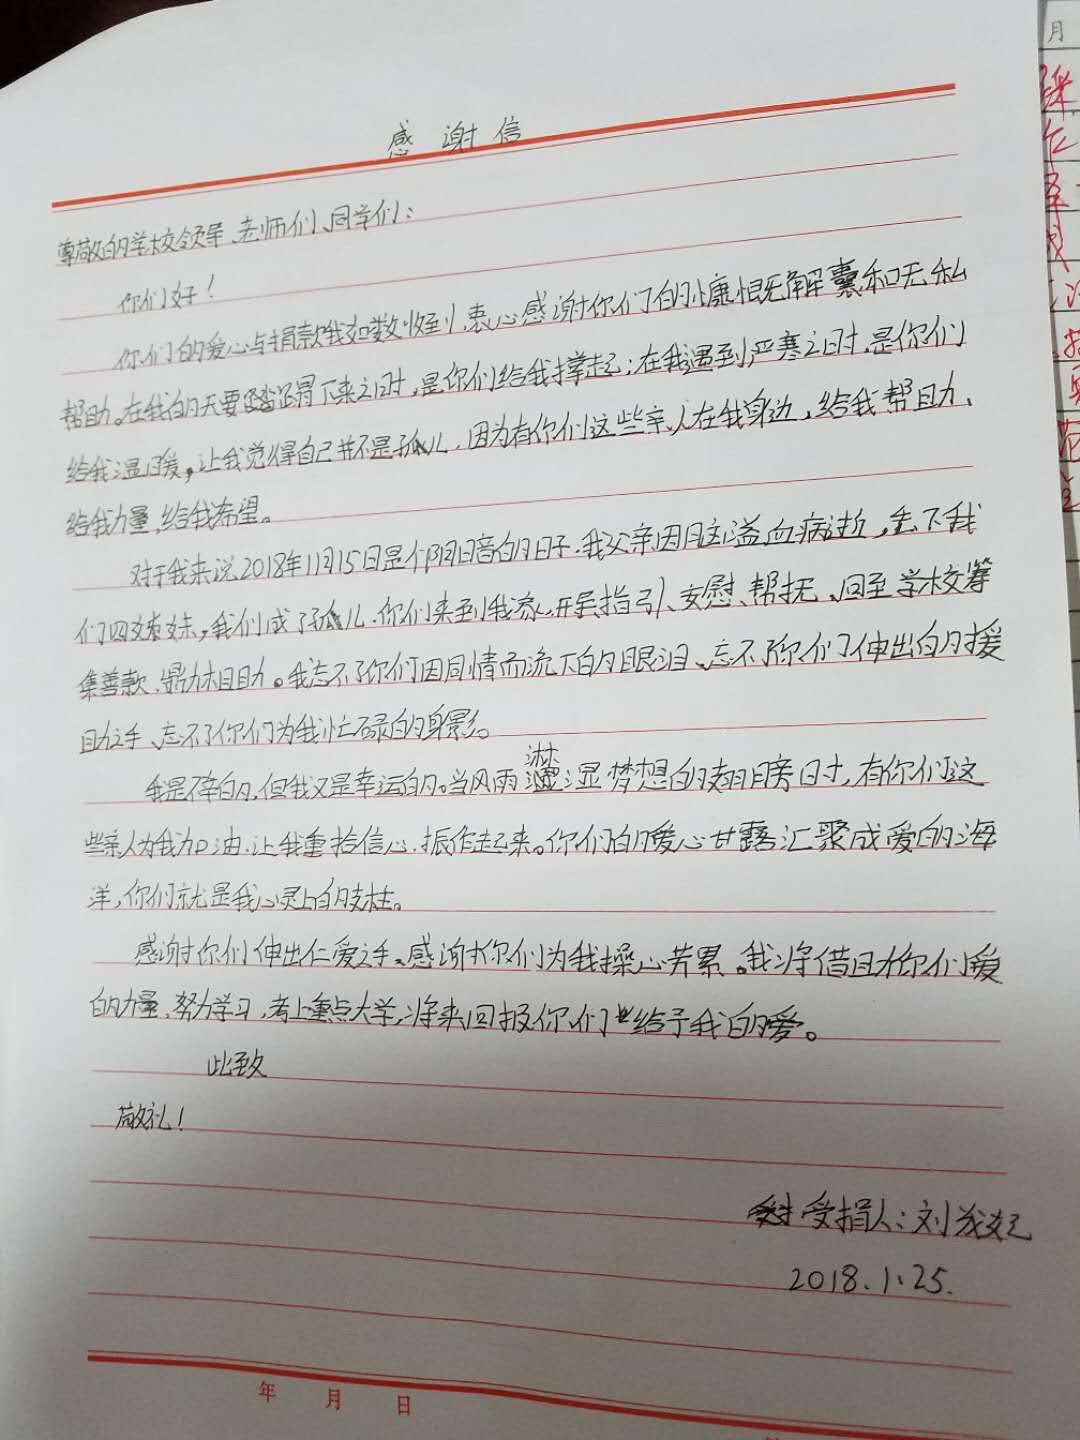 感谢信
尊敬的学校领导、老师们、同学们：
你们好！
你们的爱心与捐款我如数收到，衷心感谢你们的慷慨解囊和无私
帮助。在我的天要塌下来之时，是你们给我撑起；在我遇到严寒之时，是你们
给我温暖，让我觉得自己并不是孤儿，因为有你们这些亲人在我身边，给我帮助、
给我力量，给我希望。
对于我来说2018年11月15日是个阴暗的日子，我父亲因脑溢血病逝，丢下我
们四姊妹，我们成了孤儿，你们来到我家，开导指引、安慰、帮抚、回至学校筹
集善款、鼎力相助。我忘不了你们因同情而流下的眼泪、忘不了你们伸出的援
助之手、忘不了你们为我忙碌的身影。
我是不幸的，但我又是幸运的。当风雨淋湿梦想的翅膀时，有你们这
些亲人为我加油，让我重拾信心，振作起来。你们的爱心甘露汇聚成爱的海
洋，你们就是我心灵上的支柱。
感谢你们伸出仁爱之手、感谢你们为我操心劳累。我将借助你们爱
的力量，努力学习，考上重点大学，将来回报你们给予我的爱。
此致
敬礼！
受捐人：刘
2018.1.25.
年 月 日
月